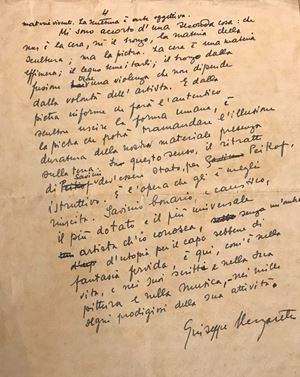 4
materie viventi. La scultura è arte oggettiva.
Mi sono accorto d'una seconda cosa: che
non è la cera, nè il bronzo, la materia della
scultura; ma la pietra. La cera è una materia
effimera; il legno semi tarli; il bronzo dalla
fusione una violenza che non dipende
dalla volontà dell'artista. È dalla
pietra informe che farà l'autentico
scultore uscire la forma umana, è
la pietra che potrà tramandare l'illusione
duratura della nostra materiale presenza
sulla terra. In questo senso, il ritratto
di Savinio dev'essere stato, per Peikof,
istruttivo. È l'opera che gli è meglio
riuscita. Savinio bonario, e caustico,
il più dotato e il più universale
artista ch'io conosca, senza un'ombra
d'utopia per il capo sebbene di
fantasia fervida, è qui, com'è nella
vita, e nei suoi scritti e nella sua
pittura e nella musica, nei mille
segni prodigiosi della sua attività.
Giuseppe Ungaretti